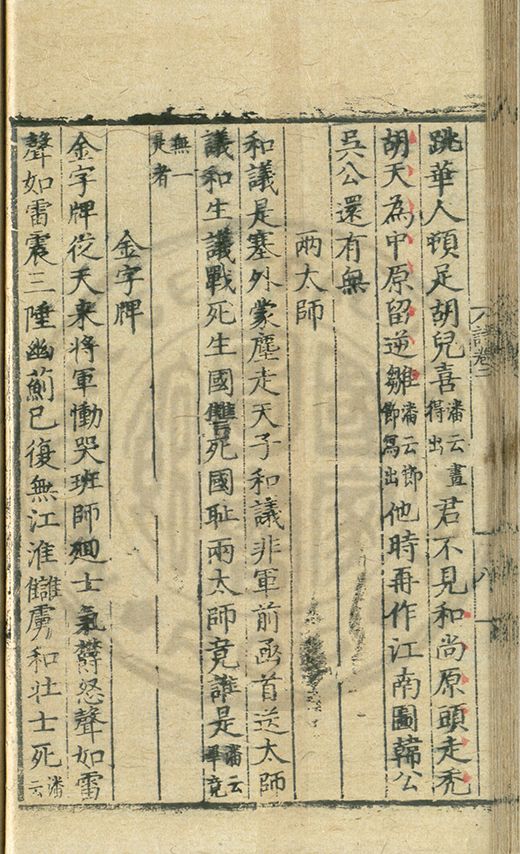 跳華人頓足胡兒喜潘云畫得出君不見和尚原頭走禿
胡天為中原留逆雛潘云節節寫出他時再作江南圖韓公
吳公還有無
兩太師
和議是塞外蒙塵走天子和議非軍前函首送太師
議和生議戰死生國讐死國恥兩太師竟誰是潘云畢竟
無一是者
金字牌
金字牌從天來將軍慟哭班師廻士氣欝怒聲如雷
聲如雷震三陲幽薊已復無江淮讎虜和壯士死潘云